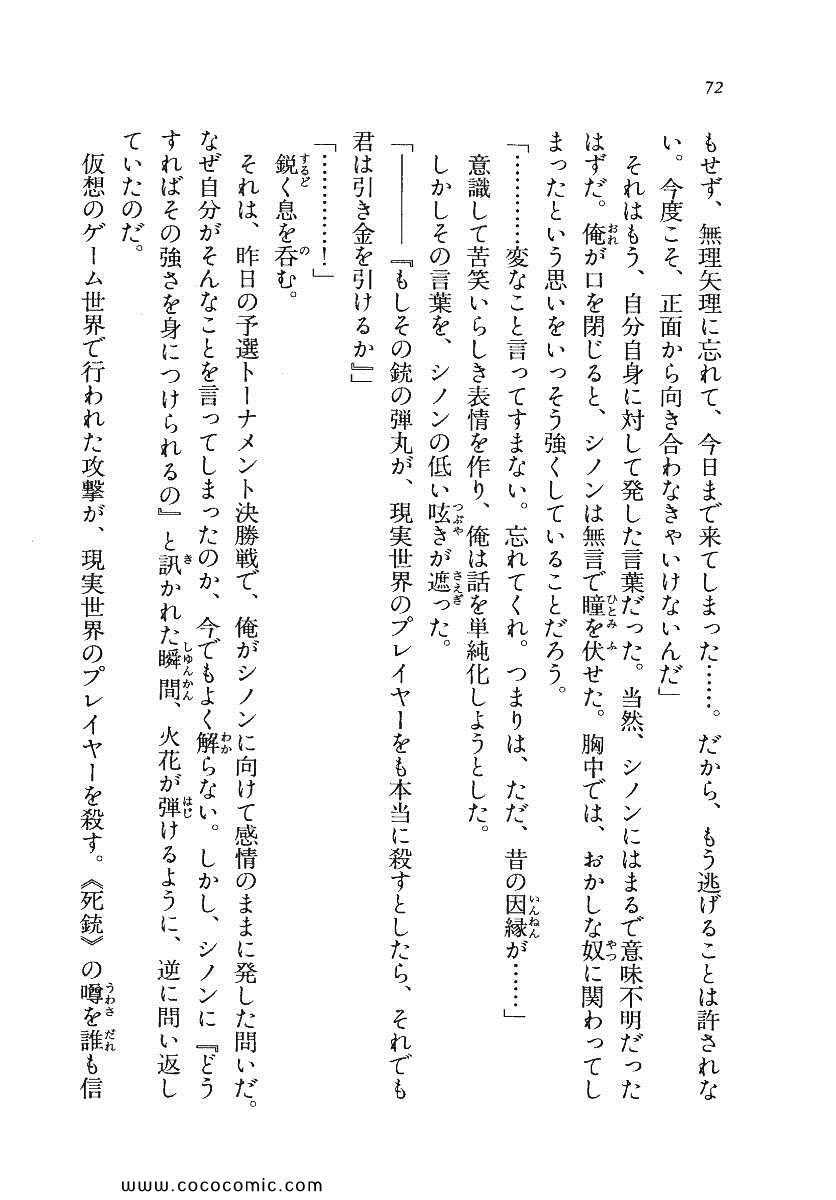 72
もせず、無理矢理に忘れて、今日まで来てしまった……。だから、もう逃げることは許されな
い。今度こそ、正面から向き合わなきゃいけないんだ」
　それはもう、自分自身に対して発した言葉だった。当然、シノンにはまるで意味不明だった
はずだ。俺が口を閉じると、シノンは無言で瞳を伏せた。胸中では、おかしな奴に関わってし
まったという思いをいっそう強くしていることだろう。
「…………変なこと言ってすまない。忘れてくれ。つまりは、ただ、昔の因縁が……」
　意識して苦笑いらしき表情を作り、俺は話を単純化しようとした。
　しかしその言葉を、シノンの低い呟きが遮った。
「――――『もしその銃の弾丸が、現実世界のプレイヤーをも本当に殺すとしたら、それでも
君は引き金を引けるか』」
「…………！」
　鋭く息を呑む。
　それは、昨日の予選トーナメント決勝戦で、俺がシノンに向けて感情のままに発した問いだ。
なぜ自分がそんなことを言ってしまったのか、今でもよく解らない。しかし、シノンに『どう
すればその強さを身につけられるの』と訊かれた瞬間、火花が弾けるように、逆に問い返し
ていたのだ。
　仮想のゲーム世界で行われた攻撃が、現実世界のプレイヤーを殺す。《死銃》の噂を誰も信
www.cococomic.com